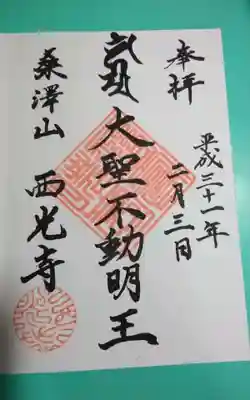 奉拝
平成三十一年
二月三日
大聖不動明王
桑澤山 西光寺